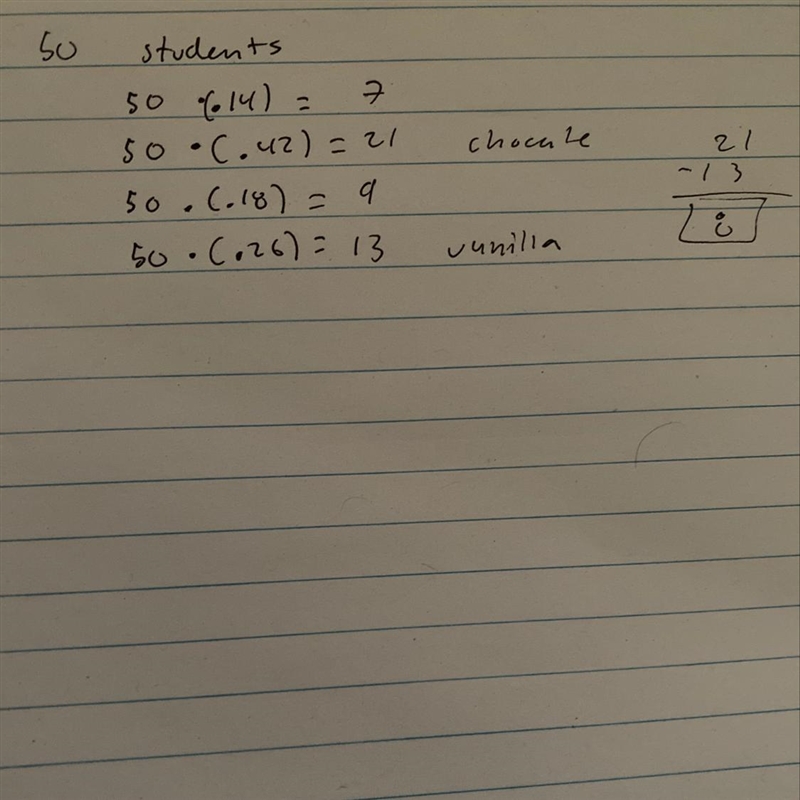 50 students
50 · (.14) = 7
50 · (.42) = 21 chocate
50 . (.18) = 9
50 · (.26) = 13 vunilla
21
-13
8